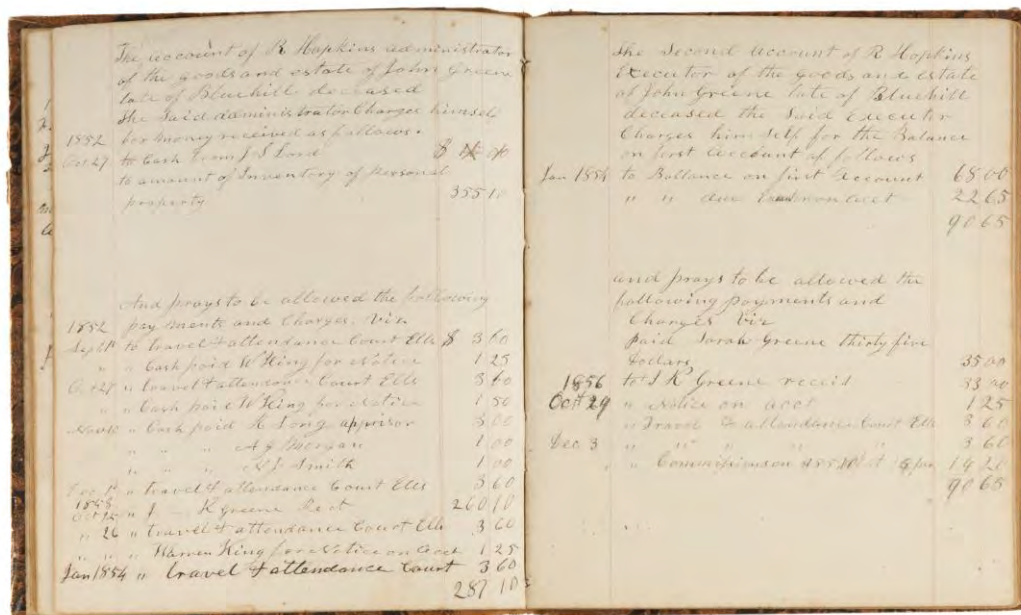 The account of R Hopkins administrator
of the goods and estate of John Greene
late of Bluehill deceased
The Said administrator Charges himself
1852 for money received as follows.
Oct 27 to Cash from J S Lord $
to amount of Inventory of Personal
property 355 10
And prays to be allowed the following
1852 pay ments and Charges. Viz
Sept to travel & attendance Court Ells $ 3 60
" " Cash paid W King for Notice 1 25
Oct 27 " travel & attendance Court Ells 3 60
" " Cash paid W King for Notice 1 50
" Cash paid Long apprisor 3 00
" " " A G Morgan 1 00
" " " Smith 1 00
" travel & attendance Court Ells 3 60
" K greene Rect 260 10
" 26 " travel & attendance Court Ells 3 60
" " " Warren King for Notice on acct 1 25
Jan 1854 " travel & attendance Court 3 60
287 10
The Second account of R Hopkins
Executor of the goods and estate
of John Greene late of Bluehill
deceased the Said executor
Charges him self for the Balance
on first account as follows
Jan 1854 to Ballance on first account 68 00
" " due on acct 22 65
90 65
and prays to be allowed the
following payments and
Charges Viz
paid Sarah Greene thirty five
Dollars 35 00
1856 to J K Greene receis 33 00
Oct 29 " Notice on acct 1 25
" Travel & attendance Court Ells 3 60
Dec 3 " " " " " 3 60
" Commission on 14 20
90 65